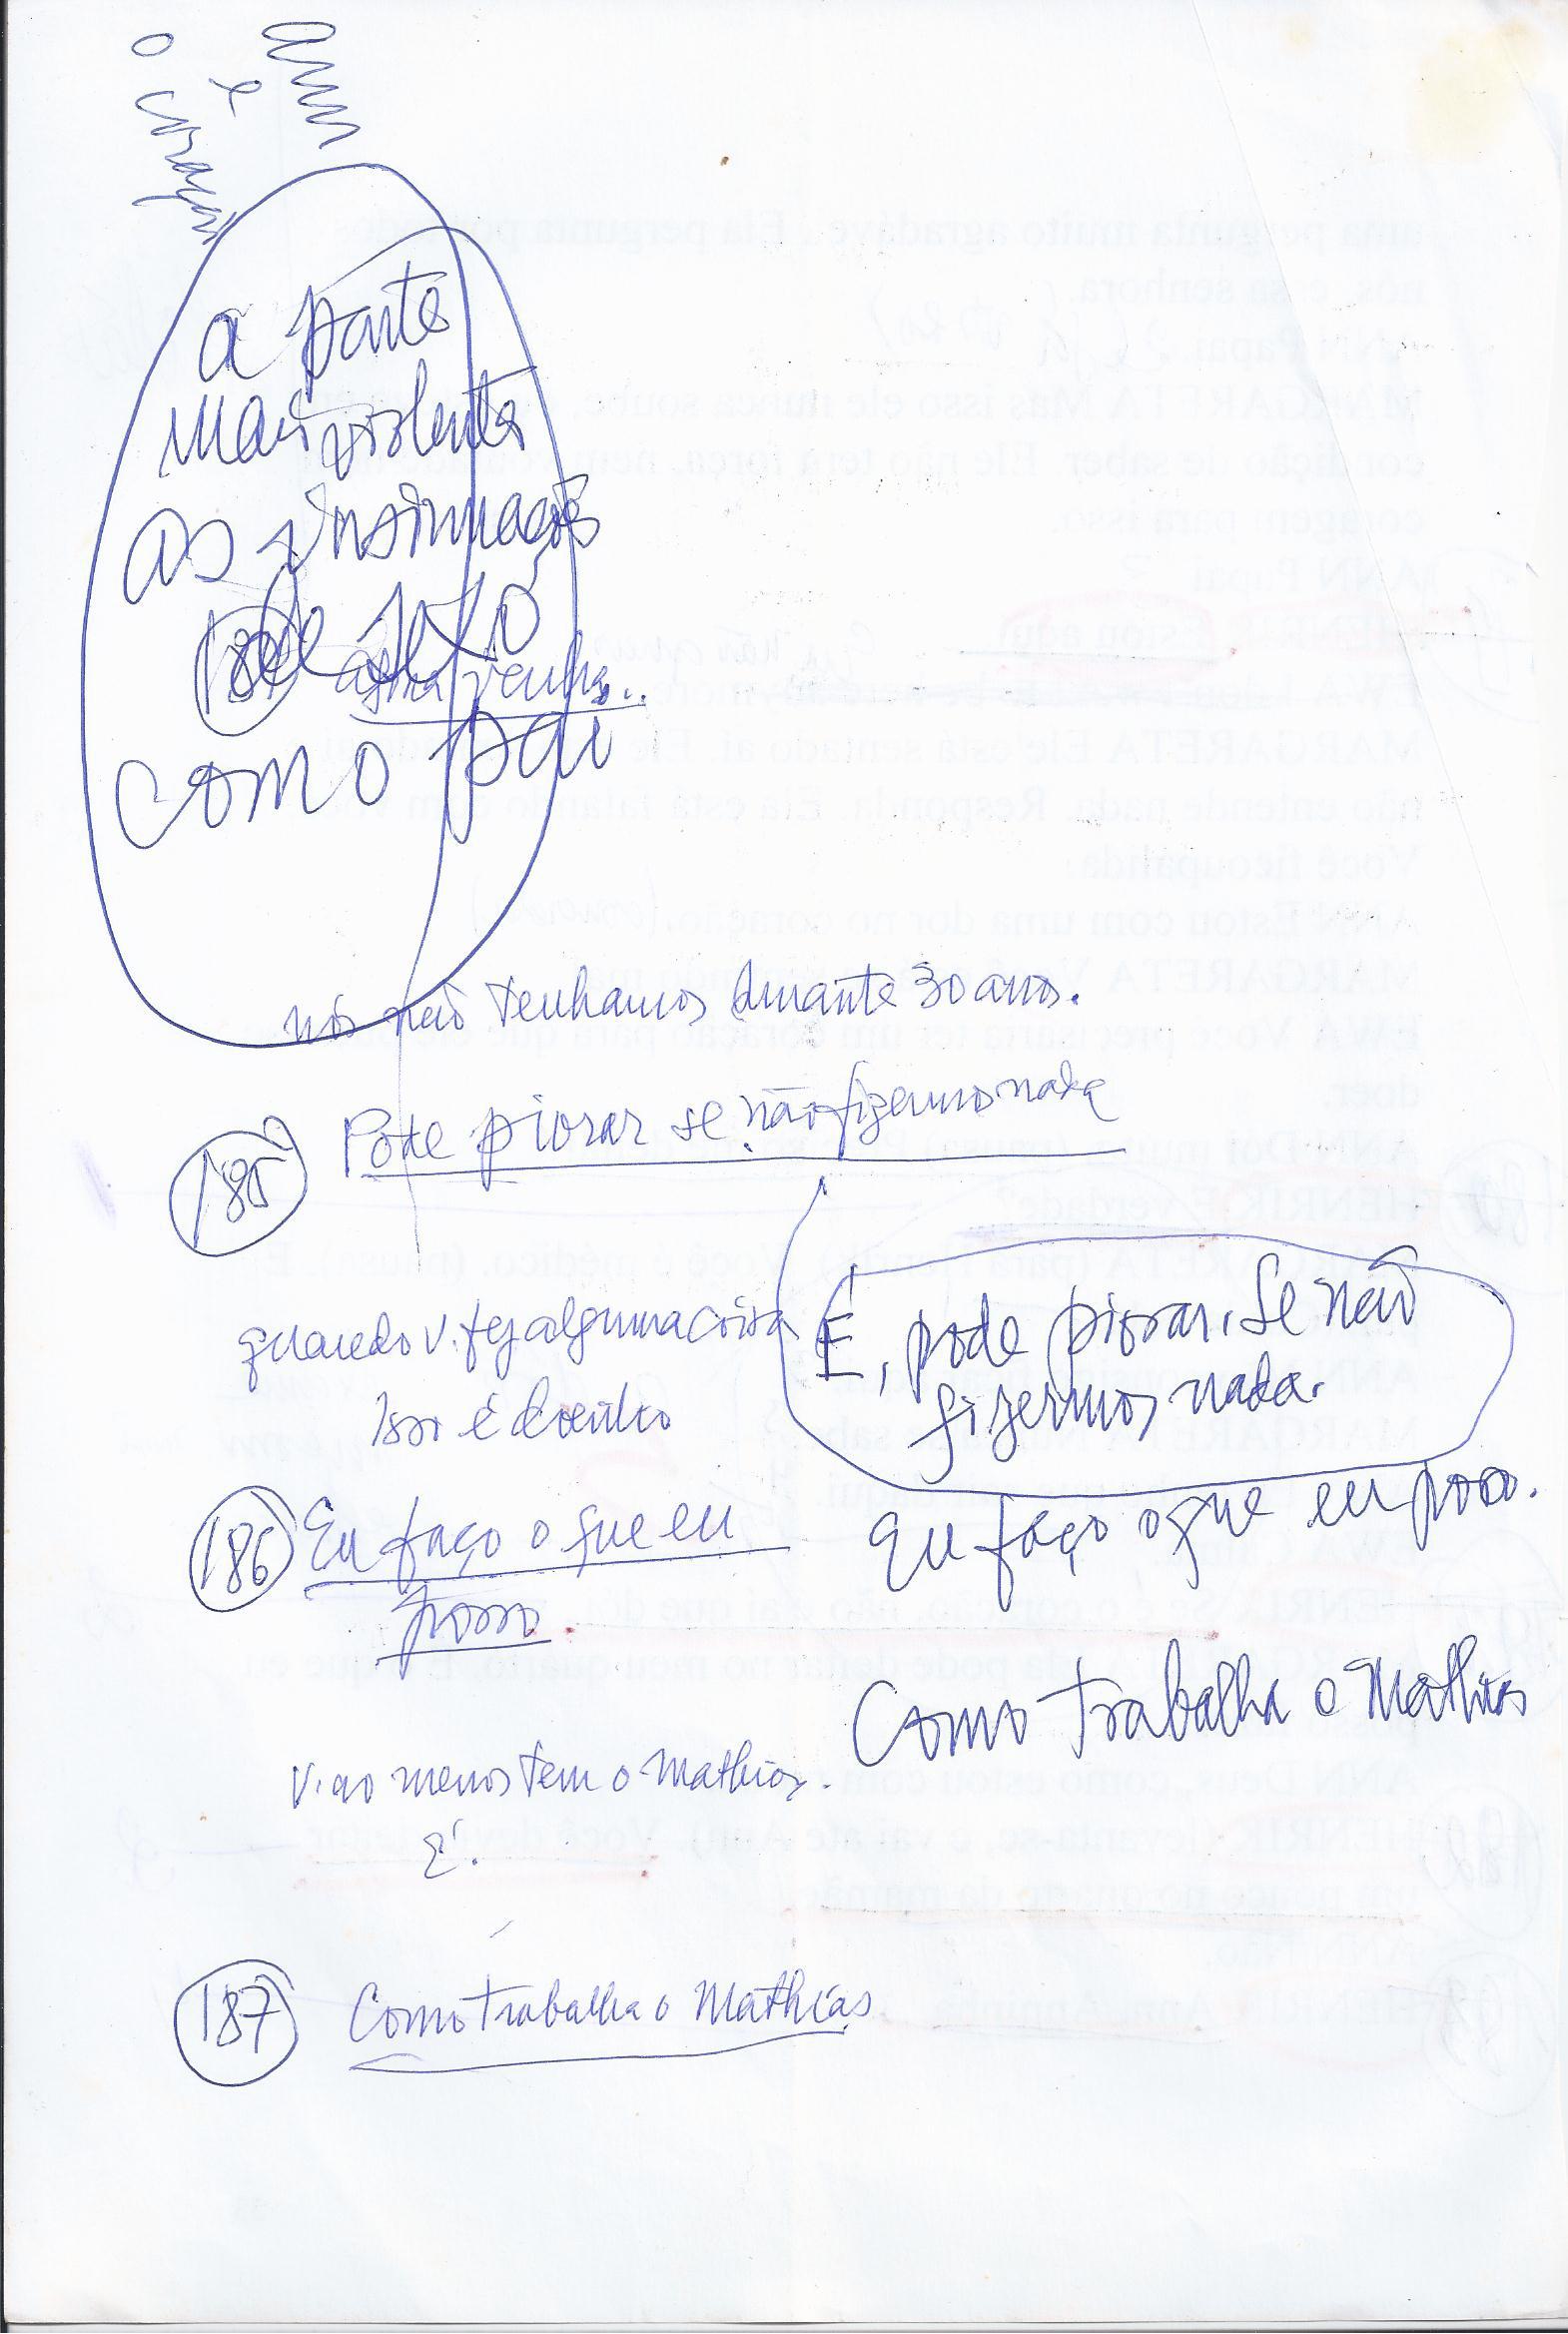 Ann
e
o coração
a parte
mais violenta
as insinuações
de
184
agora venha...
como pai
nós não tenhamos durante 30 anos.
185 Pode piorar se não fizermos nada
É, pode piorar. Se não
fizermos nada.
quando v. fez alguma coisa
Isso é
186 Eu faço o que eu
posso.
Eu faço o que eu posso.
Como trabalha o Mathias
V. ao menos tem o Mathias.
É.
187 Como trabalha o Mathias